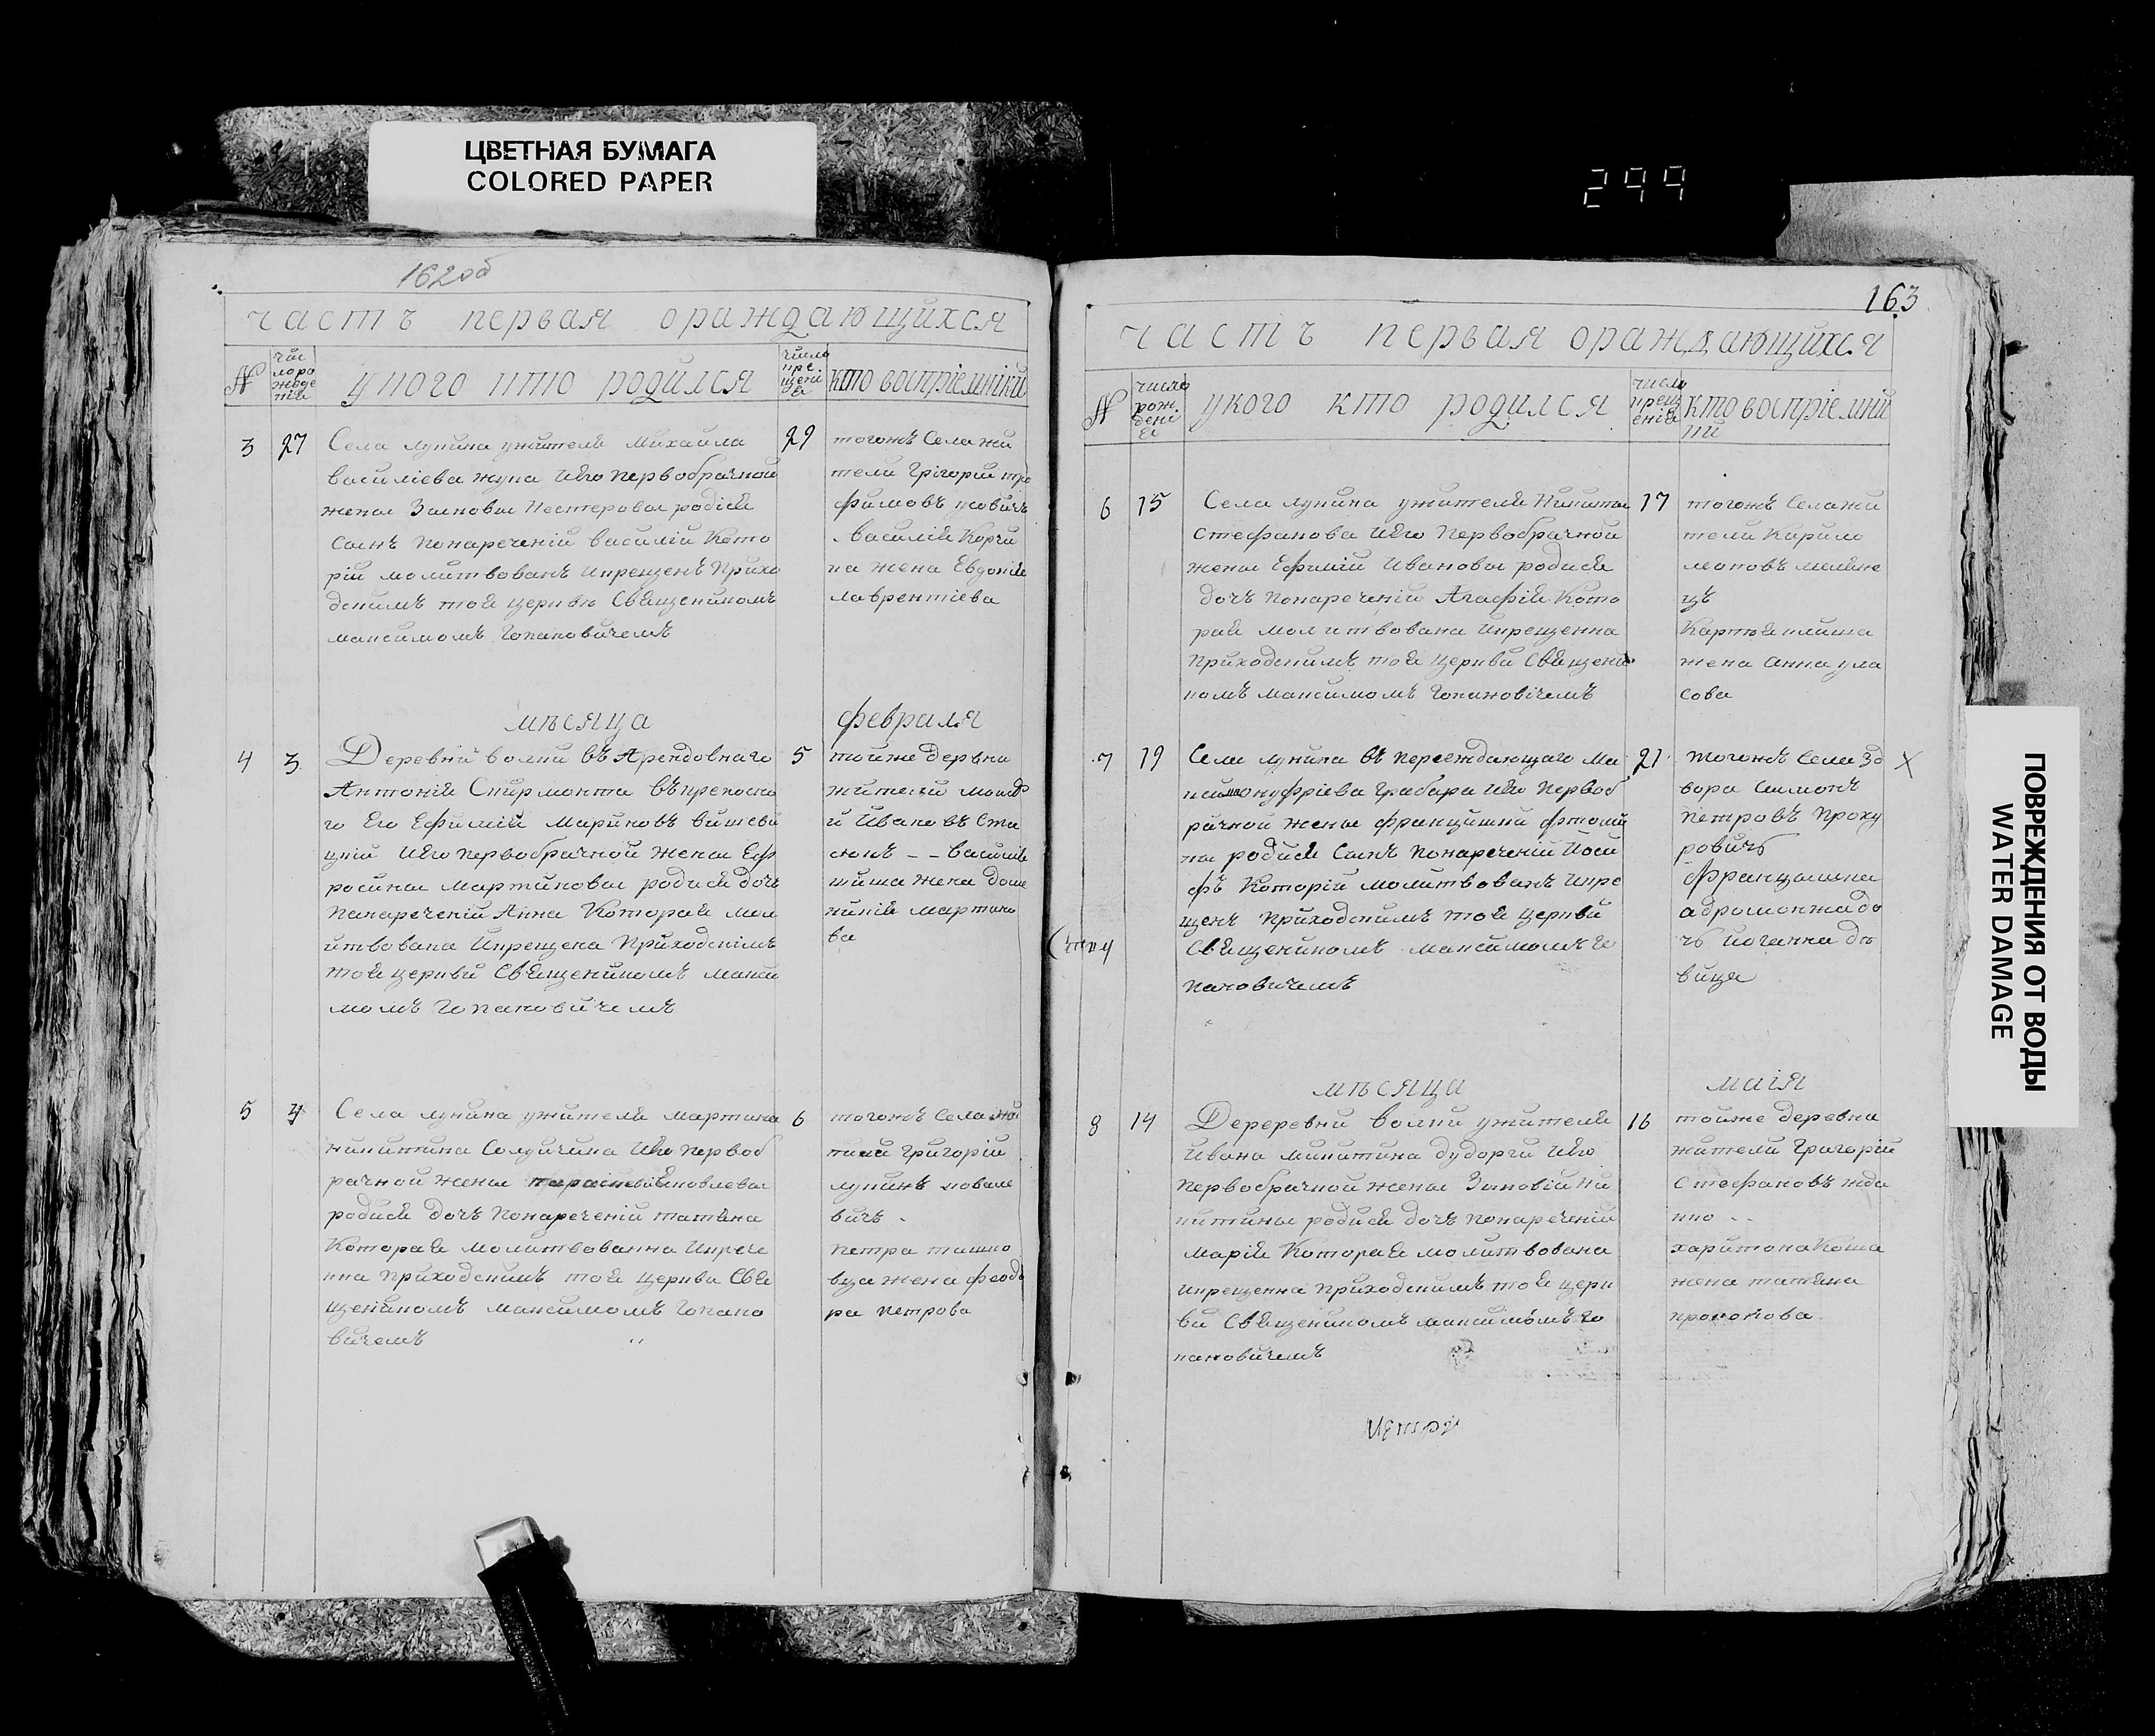 ЦВЕТНАЯ БУМАГА
COLORED PAPER
299
162об
часть первая ораждающихся
№
чис
ло ро
жде
нія
у кого кто родился
число
кре.
щені
я
кто воспріемніки
3 27 29
Села лунина ужителя Михайла
василіева жука Иего первобрачной
жены Зыновы Нестеровы родися
Сынъ понареченій василій Кото
рій молитвованъ икрещенъ Прихо
дскимъ тоя церкви Священикомъ
максимомъ Гопановичемъ
тогожъ Села жи
тели Грігорій тро
фимовъ усовичъ
василія Корчи
на жена Евдокія
лаврентіева
мѣсяца февраля
4 3 5
Деревни волки въ Арендовнаго
Антонія Стирмонта въ крепосно
го Его Ефимія Мариковъ вишеви
цкій Иего первобрачной жены Еф
росины Мартиновы родися дочь
Понареченій Анна Которая мол
итвована Икрещена Приходскімъ
тоя церкви Священикомъ макси
момъ Гопановичемъ
тойже деревна
жителй
й Ивановъ Ста
сюкъ - - василія
шиша жена Дом
никія мартино
ва
5 4 6
Села лунина ужителя мартина
никитина Солдичина Иего первоб
рачной жены
родися дочъ Понареченій татяна
Которая молитвованна Икреще
нна Приходскимъ тоя церкви Свя
щеникомъ максимомъ Гопано
вичемъ
тогожъ Села жи
тели Григорій
лукинъ ковале
вичъ -
Петра тишко
вца жена феодо
ра петрова
163
часть первая ораждающихся
№
число
рож.
дені
я
укого кто родился
число
крещ
енія
кто воспріемни
ки
6 15 17
Села лунина ужителя Никиты
Стефанова Иего Первобрачной
жены Ефимій Ивановы родися
дочъ Понареченій Агафія Кото
рая молитвована Икрещенна
Приходскимъ тоя церкви Священи
комъ максимомъ Гопановічемъ
тогожъ Села жи
тели Кирило
леоновъ мелне
цъ
Карпа шиша
жена анна ула
сова
7 19 21 х
Села лунина въ переежджающаго Ма
ксима онуфріева Грабара Иего Первоб
рачной жены францишки
ны родися Сынъ Понареченій Йоси
фъ Которій молитвованъ Икре
щенъ Приходскимъ тоя церкви
Священикомъ максимомъ Го
пановичемъ
тогожъ Села Зд
вора Симонъ
Петровъ Проку
ровичъ
францышка
адромонжа до
чъ йоганна дѣ
вица
мѣсяца маія
8 14 16
Дереревни волки ужителя
Ивана микитина дударги Иего
Первобрачной жены Зыновій Ни
китины родися дочъ понареченій
марія Которая молитвована
икрещенна Приходскимъ тоя церк
ви Священикомъ максимомъ Го
пановичемъ
тойже деревна
жители Григорій
Стефановъ жда
нко - -
харитона Коша
жена татяна
прокопова
ПОВРЕЖДЕНИЯ ОТ ВОДЫ
WATER DAMAGE